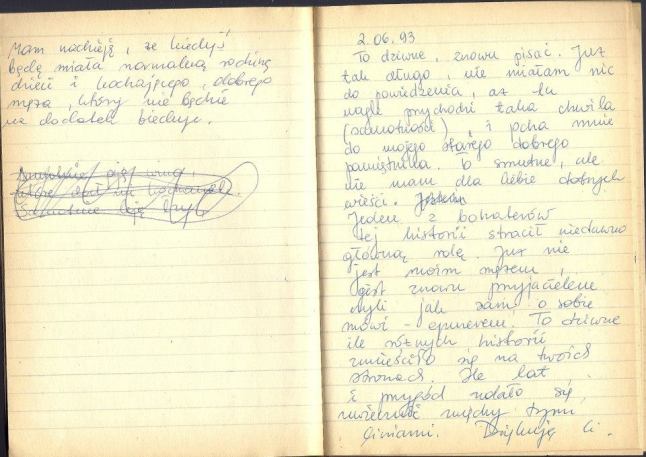 Mam nadzieję, że kiedyś
będę miała normalną rodzinę
dzieci i kochającego, dobrego
męża, który nie będzie
na dodatek
2.06.93
To dziwne, znowu pisać. Już
tak długo, nie miałam nic
do powiedzenia, aż tu
nagle przychodzi taka chwila
(samotności), i pcha mnie
do mojego starego dobrego
pamiętnika. To smutne, ale
nie mam dla Ciebie dobrych
wieści. Jestem
Jeden z bohaterów
tej historii stracił niedawno
główną rolę. Już nie
jest moim mężem,
jest znowu przyjacielem
czyli jak sam o sobie
mówi - . To dziwne
ile różnych historii
zmieściło się na twoich
stronach. Ile lat
i przygód udało się
uwiecznić między tymi
liniami. Dziękuję Ci.